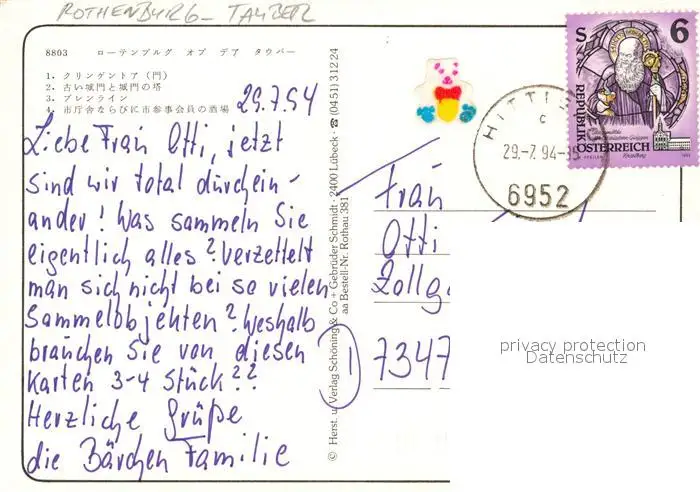 ROTHENBURG - TAUBER
8803 ローテンブルグ オブ デア タウバー
1. クリンゲントア（門）
2. 古い城門と城門の塔
3. プレンライン
4. 市庁舎ならびに市参事会員の酒場
29.7.94
Liebe Frau Otti, jetzt
sind wir total durchein-
ander! Was sammeln Sie
eigentlich alles? Verzettelt
man sich nicht bei so vielen
Sammelobjekten? Weshalb
brauchen Sie von diesen
Karten 3-4 Stück??
Herzliche Grüße
die Bärchen Familie
© Herst. u. Verlag Schöning & Co + Gebrüder Schmidt · 2400 Lübeck · ☎ (04 51) 3 12 24
aa Bestell-Nr. Rothau 381
Frau
Otti
Zollg
7347
I
HITTIS
c
29.-7.94-
6952
S 6
REPUBLIK
ÖSTERREICH
privacy protection
Datenschutz